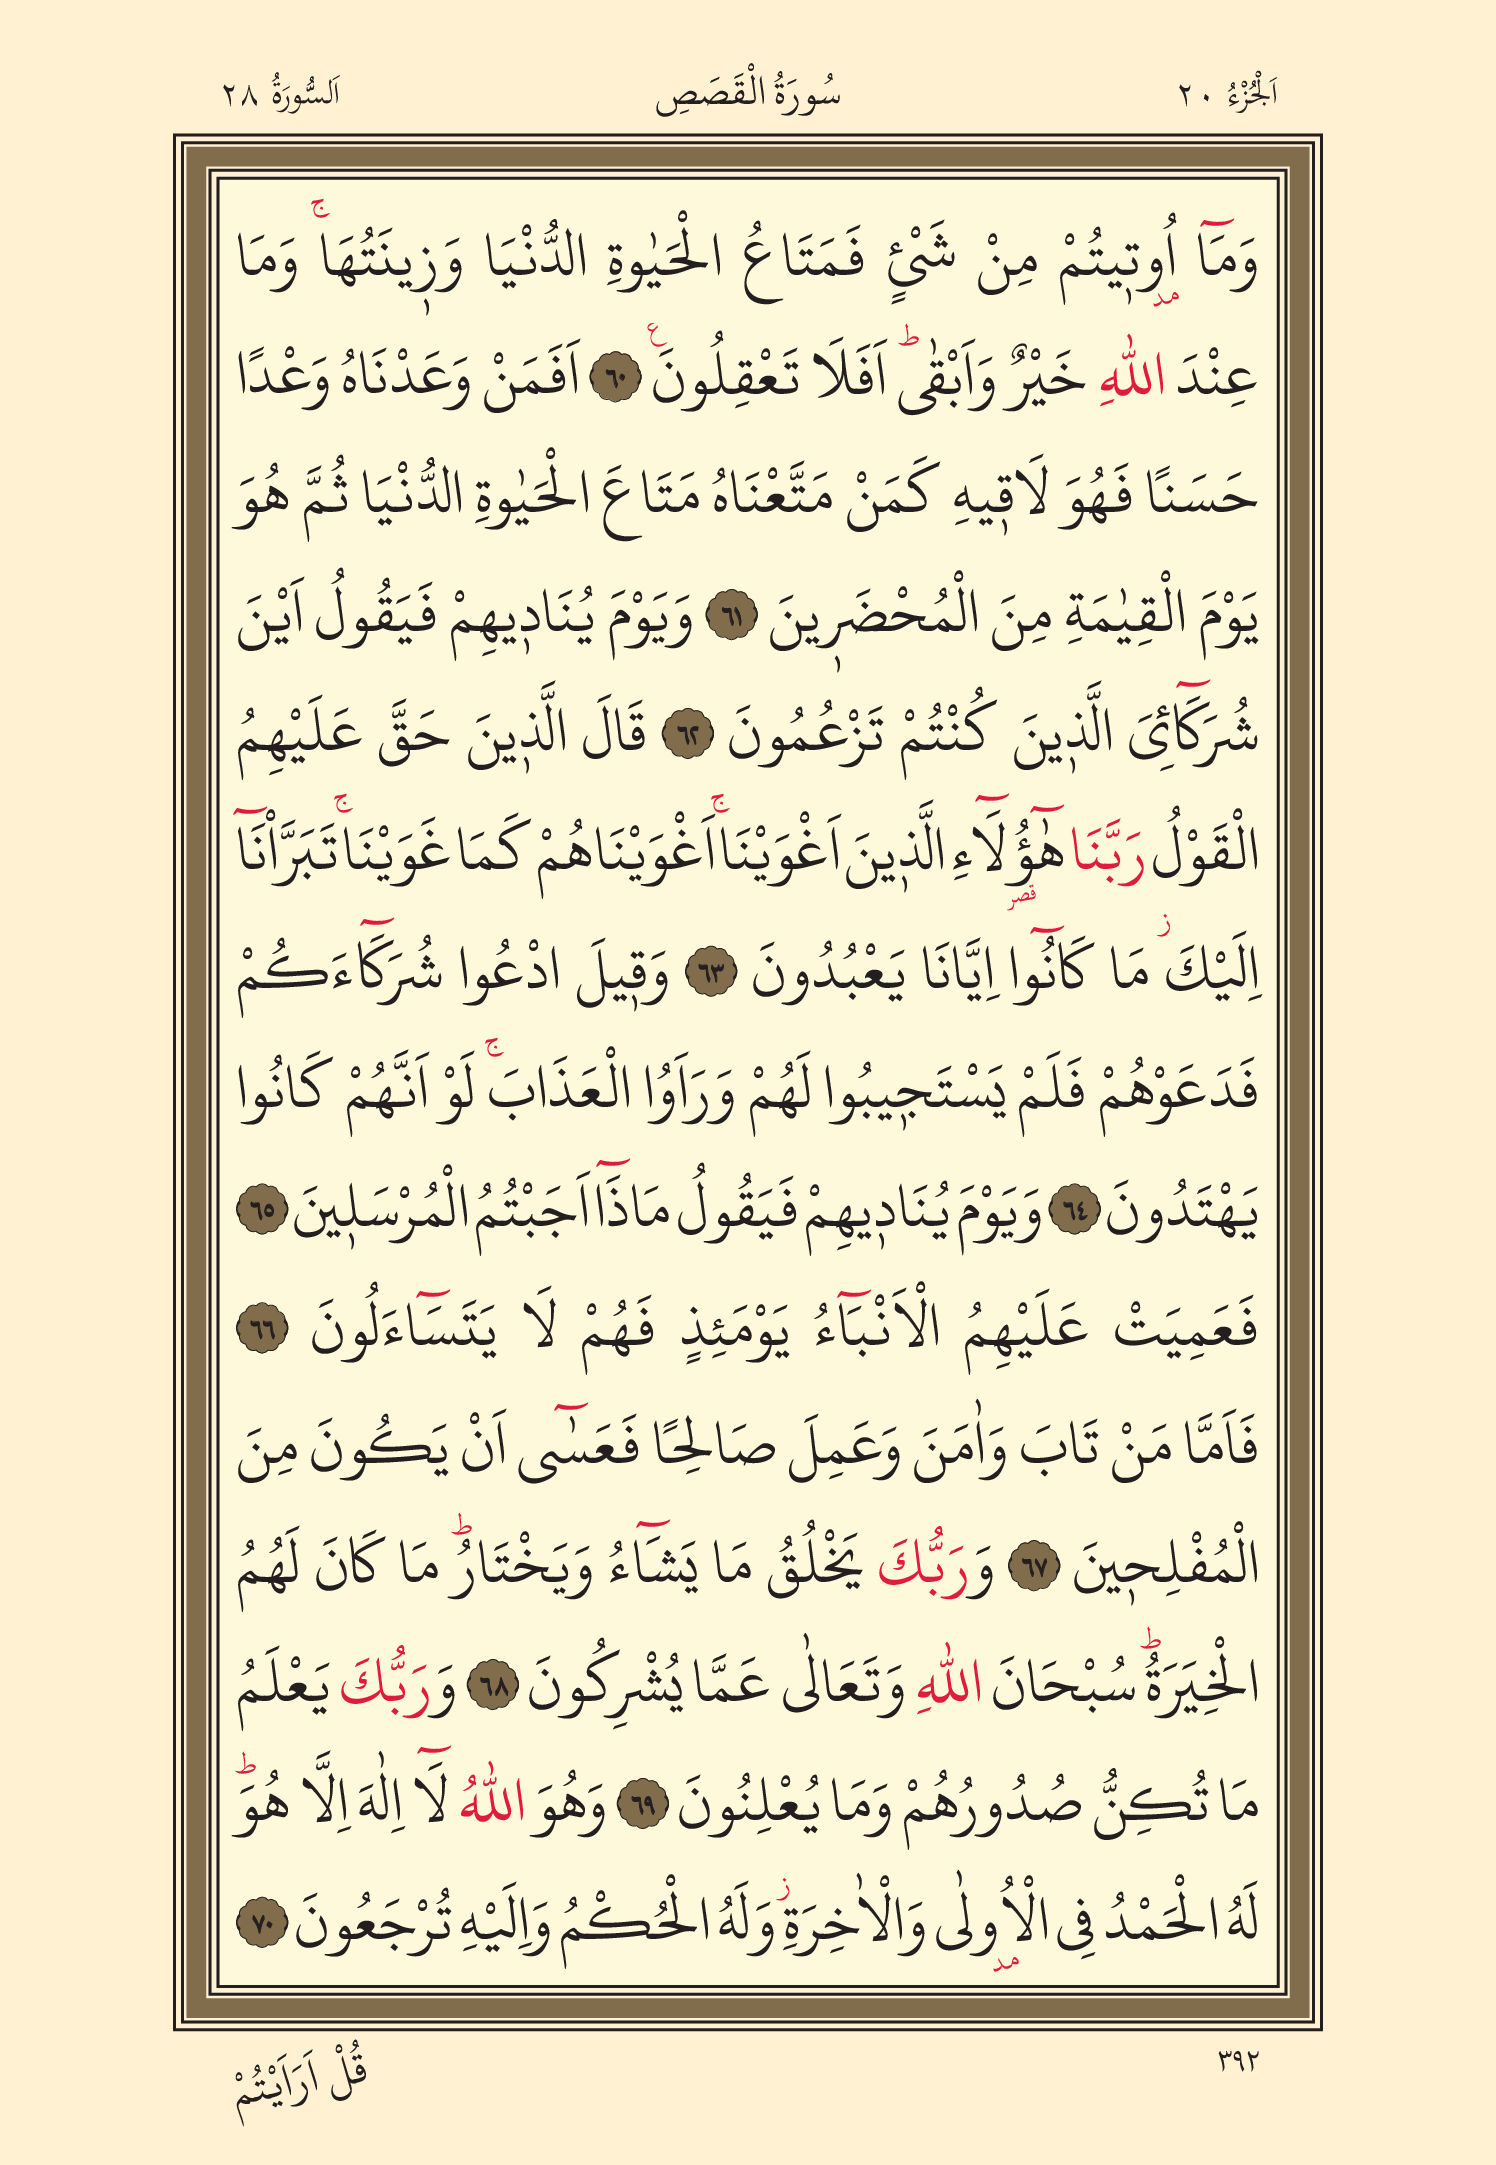 اَلْجُزْءُ ٢٠
سُورَةُ الْقَصَصِ
اَلسُّورَةُ ٢٨
وَمَٓا اُو۫ت۪يتُمْ مِنْ شَيْءٍ فَمَتَاعُ الْحَيٰوةِ الدُّنْيَا وَز۪ينَتُهَاۚ وَمَا
عِنْدَ اللّٰهِ خَيْرٌ وَاَبْقٰىۜ اَفَلَا تَعْقِلُونَ۟ ﴿٦٠﴾ اَفَمَنْ وَعَدْنَاهُ وَعْدًا
حَسَنًا فَهُوَ لَاق۪يهِ كَمَنْ مَتَّعْنَاهُ مَتَاعَ الْحَيٰوةِ الدُّنْيَا ثُمَّ هُوَ
يَوْمَ الْقِيٰمَةِ مِنَ الْمُحْضَر۪ينَ ﴿٦١﴾ وَيَوْمَ يُنَاد۪يهِمْ فَيَقُولُ اَيْنَ
شُرَكَٓائِيَ الَّذ۪ينَ كُنْتُمْ تَزْعُمُونَ ﴿٦٢﴾ قَالَ الَّذ۪ينَ حَقَّ عَلَيْهِمُ
الْقَوْلُ رَبَّنَا هٰٓؤُ۬لَٓاءِ الَّذ۪ينَ اَغْوَيْنَاۚ اَغْوَيْنَاهُمْ كَمَا غَوَيْنَاۚ تَبَرَّاْنَٓا
اِلَيْكَۘ مَا كَانُٓوا اِيَّانَا يَعْبُدُونَ ﴿٦٣﴾ وَق۪يلَ ادْعُوا شُرَكَٓاءَكُمْ
فَدَعَوْهُمْ فَلَمْ يَسْتَج۪يبُوا لَهُمْ وَرَاَوُا الْعَذَابَۚ لَوْ اَنَّهُمْ كَانُوا
يَهْتَدُونَ ﴿٦٤﴾ وَيَوْمَ يُنَاد۪يهِمْ فَيَقُولُ مَاذَٓا اَجَبْتُمُ الْمُرْسَل۪ينَ ﴿٦٥﴾
فَعَمِيَتْ عَلَيْهِمُ الْاَنْبَٓاءُ يَوْمَئِذٍ فَهُمْ لَا يَتَسَٓاءَلُونَ ﴿٦٦﴾
فَاَمَّا مَنْ تَابَ وَاٰمَنَ وَعَمِلَ صَالِحًا فَعَسٰٓى اَنْ يَكُونَ مِنَ
الْمُفْلِح۪ينَ ﴿٦٧﴾ وَرَبُّكَ يَخْلُقُ مَا يَشَٓاءُ وَيَخْتَارُۜ مَا كَانَ لَهُمُ
الْخِيَرَةُۜ سُبْحَانَ اللّٰهِ وَتَعَالٰى عَمَّا يُشْرِكُونَ ﴿٦٨﴾ وَرَبُّكَ يَعْلَمُ
مَا تُكِنُّ صُدُورُهُمْ وَمَا يُعْلِنُونَ ﴿٦٩﴾ وَهُوَ اللّٰهُ لَٓا اِلٰهَ اِلَّا هُوَۜ
لَهُ الْحَمْدُ فِي الْاُو۫لٰى وَالْاٰخِرَةِۘ وَلَهُ الْحُكْمُ وَاِلَيْهِ تُرْجَعُونَ ﴿٧٠﴾
٣٩٢
قُلْ اَرَاَيْتُمْ